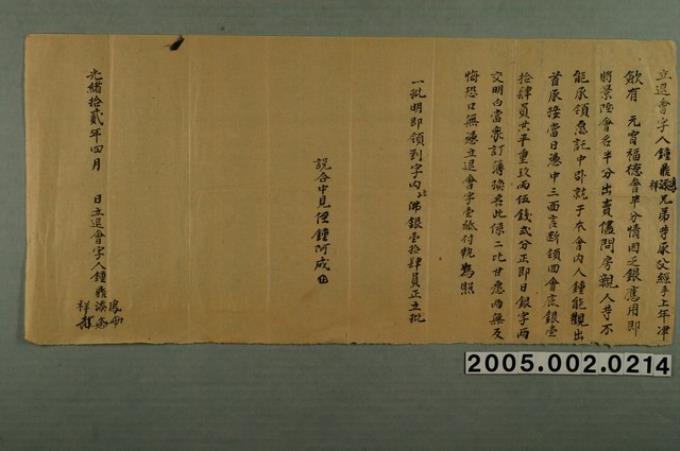 立退會字人鐘鼎添兄弟等承父經手上年津
祥
歛有元宵福德會半分情因乏銀應用即
將景陞會名半分出賣儘問房親人等不
能承領愿託中外就于本會內人鐘能觀出
首承接當日憑中三面言斷領回會底銀壹
拾肆員共平重玖両伍錢弍分正即日銀字両
交明白當眾訂簿換名此係二比甘愿両無反
悔恐口無憑立退會字壹紙付執為照
一批明即領到字內佛銀壹拾肆員正立批
說合中見侄鐘阿成
光緒拾貳年四月 日立退會字人鐘鼎添
祥
2005.002.0214